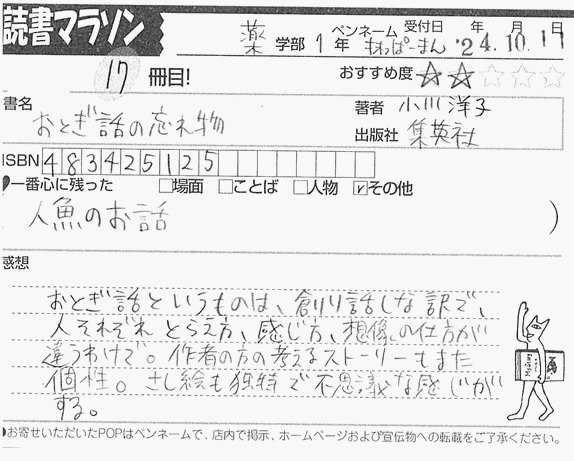 読書マラソン
薬学部 1年 ペンネーム 受付日 年 月 日
'24.10.17
17冊目! おすすめ度 ★★☆☆☆
書名 おとぎ話の忘れ物
著者 小川洋子
出版社 集英社
ISBN 483425125
一番心に残った □場面 □ことば □人物 ☑その他
人魚のお話 )
感想
おとぎ話というものは、創り話しな訳で、
人それぞれとらえ方、感じ方、想像の仕方が
違うわけで。作者の方の考えるストーリーもまた
個性。さし絵も独特で不思議な感じが
する。
お寄せいただいたPOPはペンネームで、店内で掲示、ホームページおよび宣伝物への転載をご了承ください。